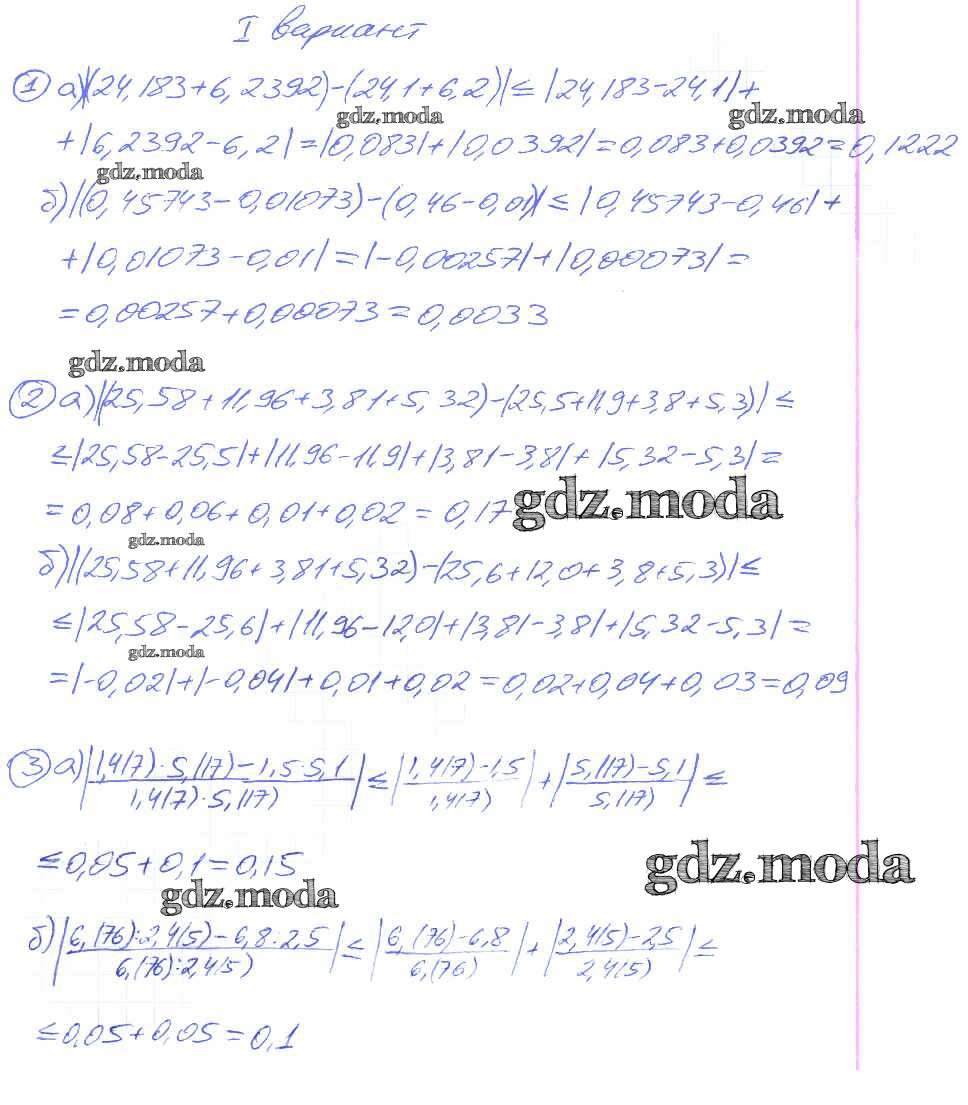 I вариант
① а) |(24,183+6,2392)-(24,1+6,2)| ≤ |24,183-24,1|+
gdz.moda gdz.moda
+|6,2392-6,2|=|0,083|+|0,0392|=0,083+0,0392=0,1222
gdz.moda
б) |(0,45743-0,01073)-(0,46-0,01)| ≤ |0,45743-0,46|+
+|0,01073-0,01|=|-0,00257|+|0,00073|=
=0,00257+0,00073=0,0033
gdz.moda
② а) |(25,58+11,96+3,81+5,32)-(25,5+11,9+3,8+5,3)| ≤
≤|25,58-25,5|+|11,96-11,9|+|3,81-3,8|+|5,32-5,3|=
=0,08+0,06+0,01+0,02=0,17
gdz.moda
gdz.moda
б) |(25,58+11,96+3,81+5,32)-(25,6+12,0+3,8+5,3)| ≤
≤|25,58-25,6|+|11,96-12,0|+|3,81-3,8|+|5,32-5,3|=
gdz.moda
=|-0,02|+|-0,04|+0,01+0,02=0,02+0,04+0,03=0,09
③ а) |(1,4(7)·5,(17)-1,5·5,1)/(1,4(7)·5,(17))| ≤ |(1,4(7)-1,5)/1,4(7)|+|(5,(17)-5,1)/5,(17)| ≤
≤0,05+0,1=0,15
gdz.moda
gdz.moda
б) |(6,(76):2,4(5)-6,8·2,5)/(6,(76):2,4(5))| ≤ |(6,(76)-6,8)/6,(76)|+|(2,4(5)-2,5)/2,4(5)| ≤
≤0,05+0,05=0,1